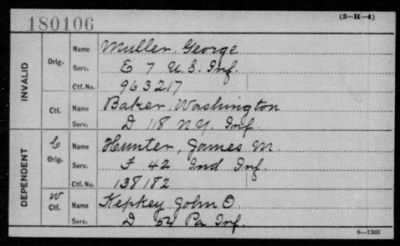 180106
(3-H-4)
INVALID
Orig.
Name Muller, George
Serv. E 7 U.S. Inf.
Ctf. No. 963217
Ctf.
Name Baker, Washington
Serv. D 118 N.Y. Inf.
DEPENDENT
C
Orig.
Name Hunter, James M.
Serv. F 42 Ind Inf.
Ctf. No. 138182
W
Ctf.
Name Kepkey John O.
Serv. D 54 Pa Inf.